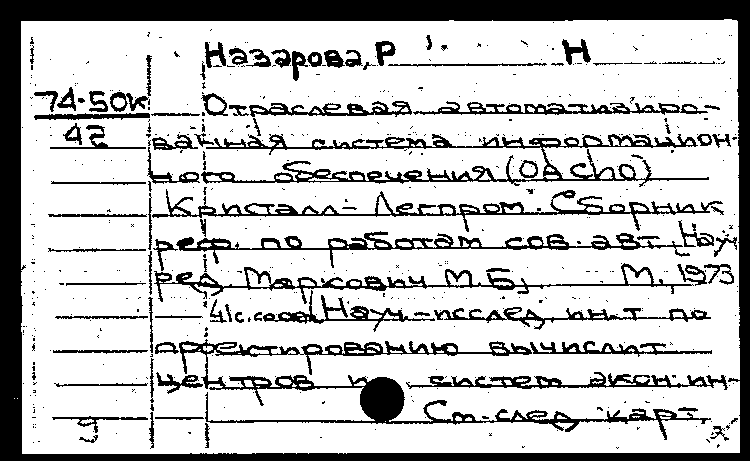 Назарова, Р Н
74-50к Отраслевая автоматизиро-
42 ванная система информацион-
ного обеспечения (ОАСНО)
Кристалл-Легпром. Сборник
реф. по работам сов. авт. [Науч.
ред. Маркович М.Б], М., 1973
41с. (Науч.-исслед. ин.т по
проектированию вычислит
центров и систем экон. ин-
9 См. след карт.